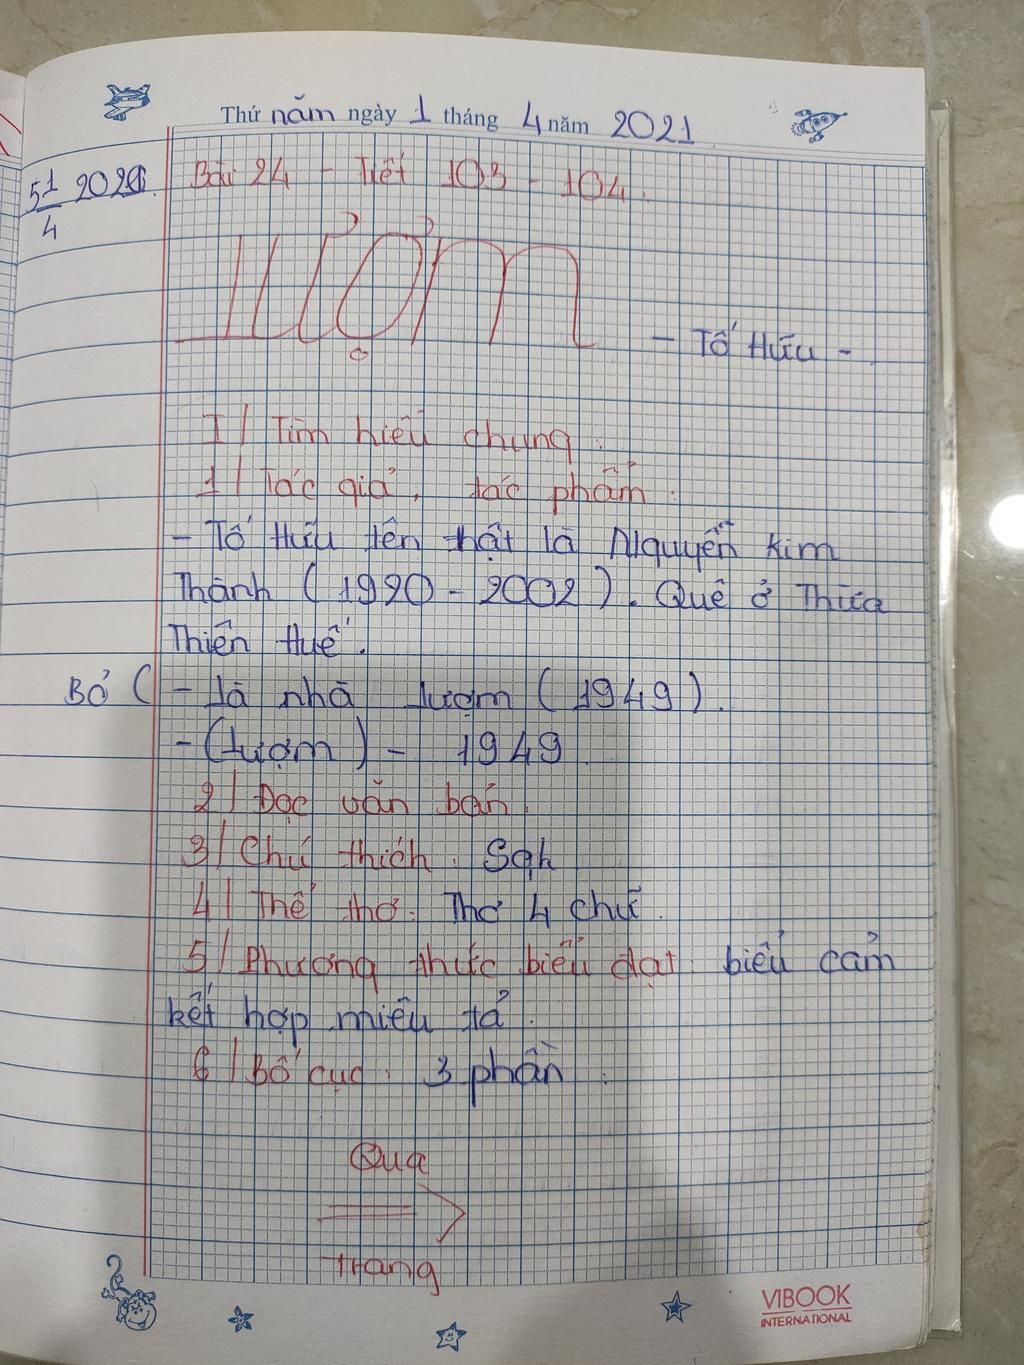 Thứ năm ngày 1 tháng 4 năm 2021
51/4 2021
Bài 24 - Tiết 103 - 104.
Lượm
- Tố Hữu -
I / Tìm hiểu chung :
1 / Tác giả, tác phẩm :
- Tố Hữu tên thật là Nguyễn Kim
Thành (1920 - 2002). Quê ở Thừa
Thiên Huế.
Bỏ ( - Là nhà Lượm (1949).
- (Lượm) - 1949.
2 / Đọc văn bản.
3 / Chú thích. Sgk
4 / Thể thơ: Thơ 4 chữ.
5 / Phương thức biểu đạt: biểu cảm
kết hợp miêu tả.
6 / Bố cục: 3 phần.
Qua
trang
VIBOOK
INTERNATIONAL